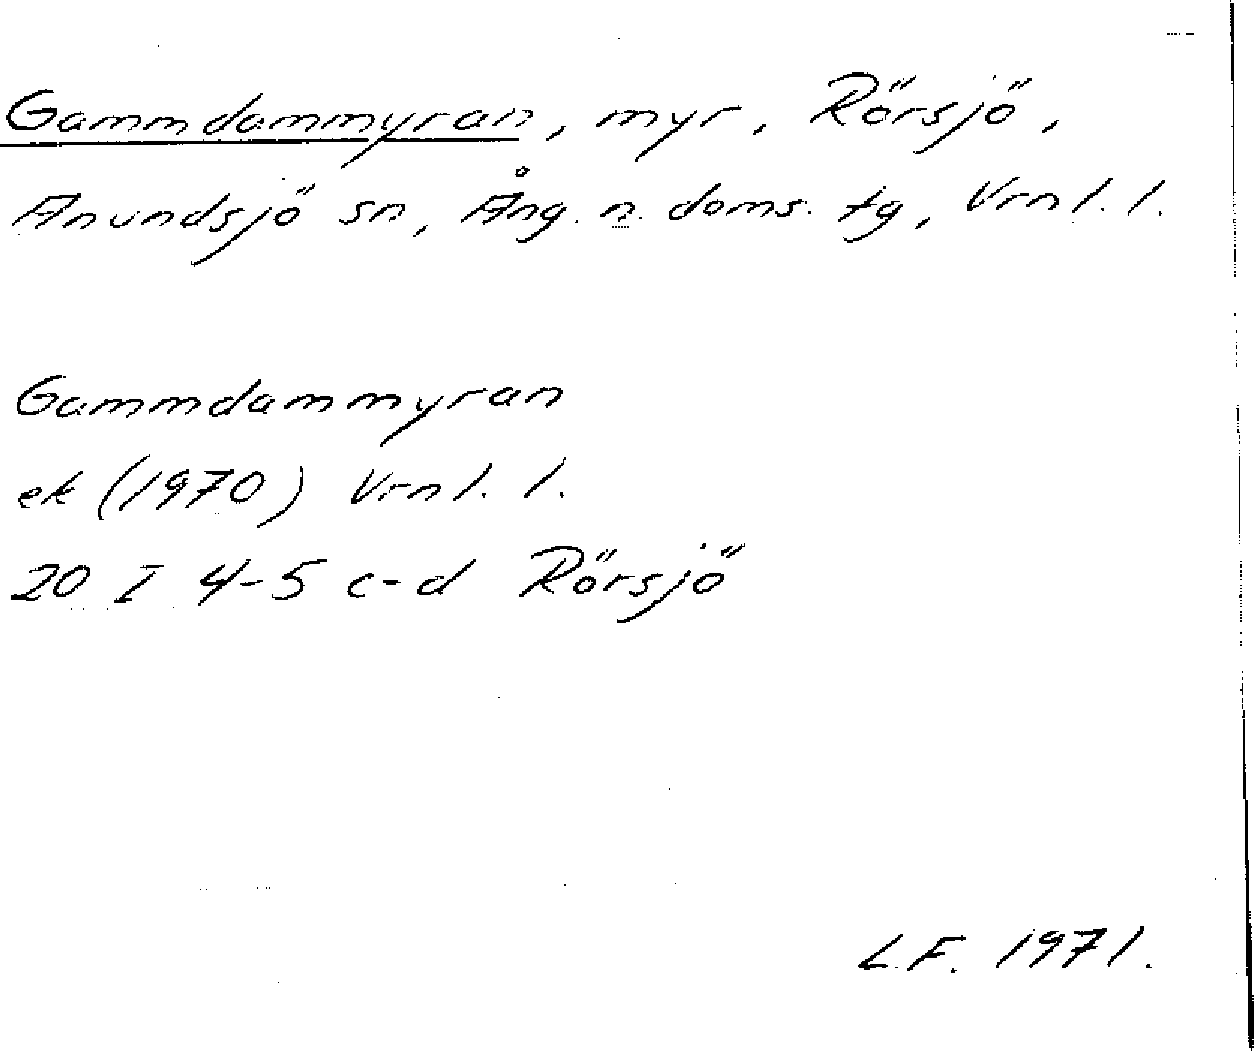 Gammdammyran, myr, Rörsjö,
Anundsjö sn, Ång. n. doms. tg, Vrnl. l.
Gammdammyran
ek (1970) Vrnl. l.
20 I 4-5 c-d Rörsjö
L.F. 1971.